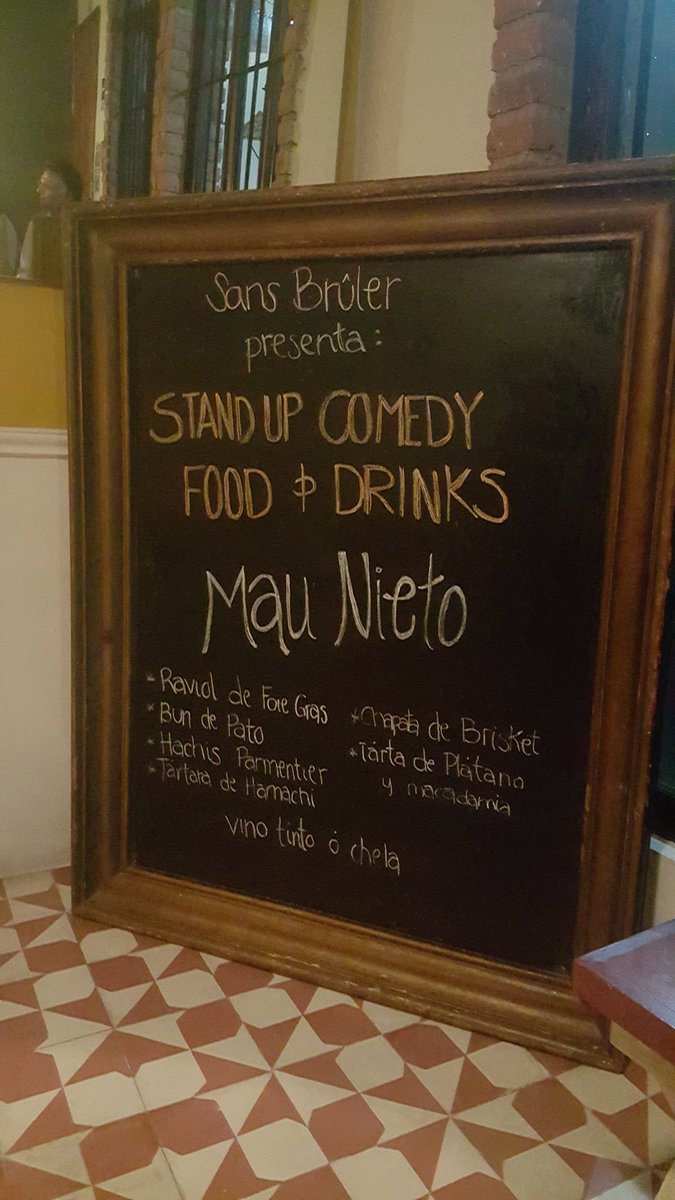 Sans Brûler
presenta:
STAND UP COMEDY
FOOD & DRINKS
Mau Nieto
- Raviol de Foie Gras
* Bun de Pato
* Hachis Parmentier
* Tártara de Hamachi
* Chapata de Brisket
* Tárta de Plátano
y macadamia
vino tinto ó chela